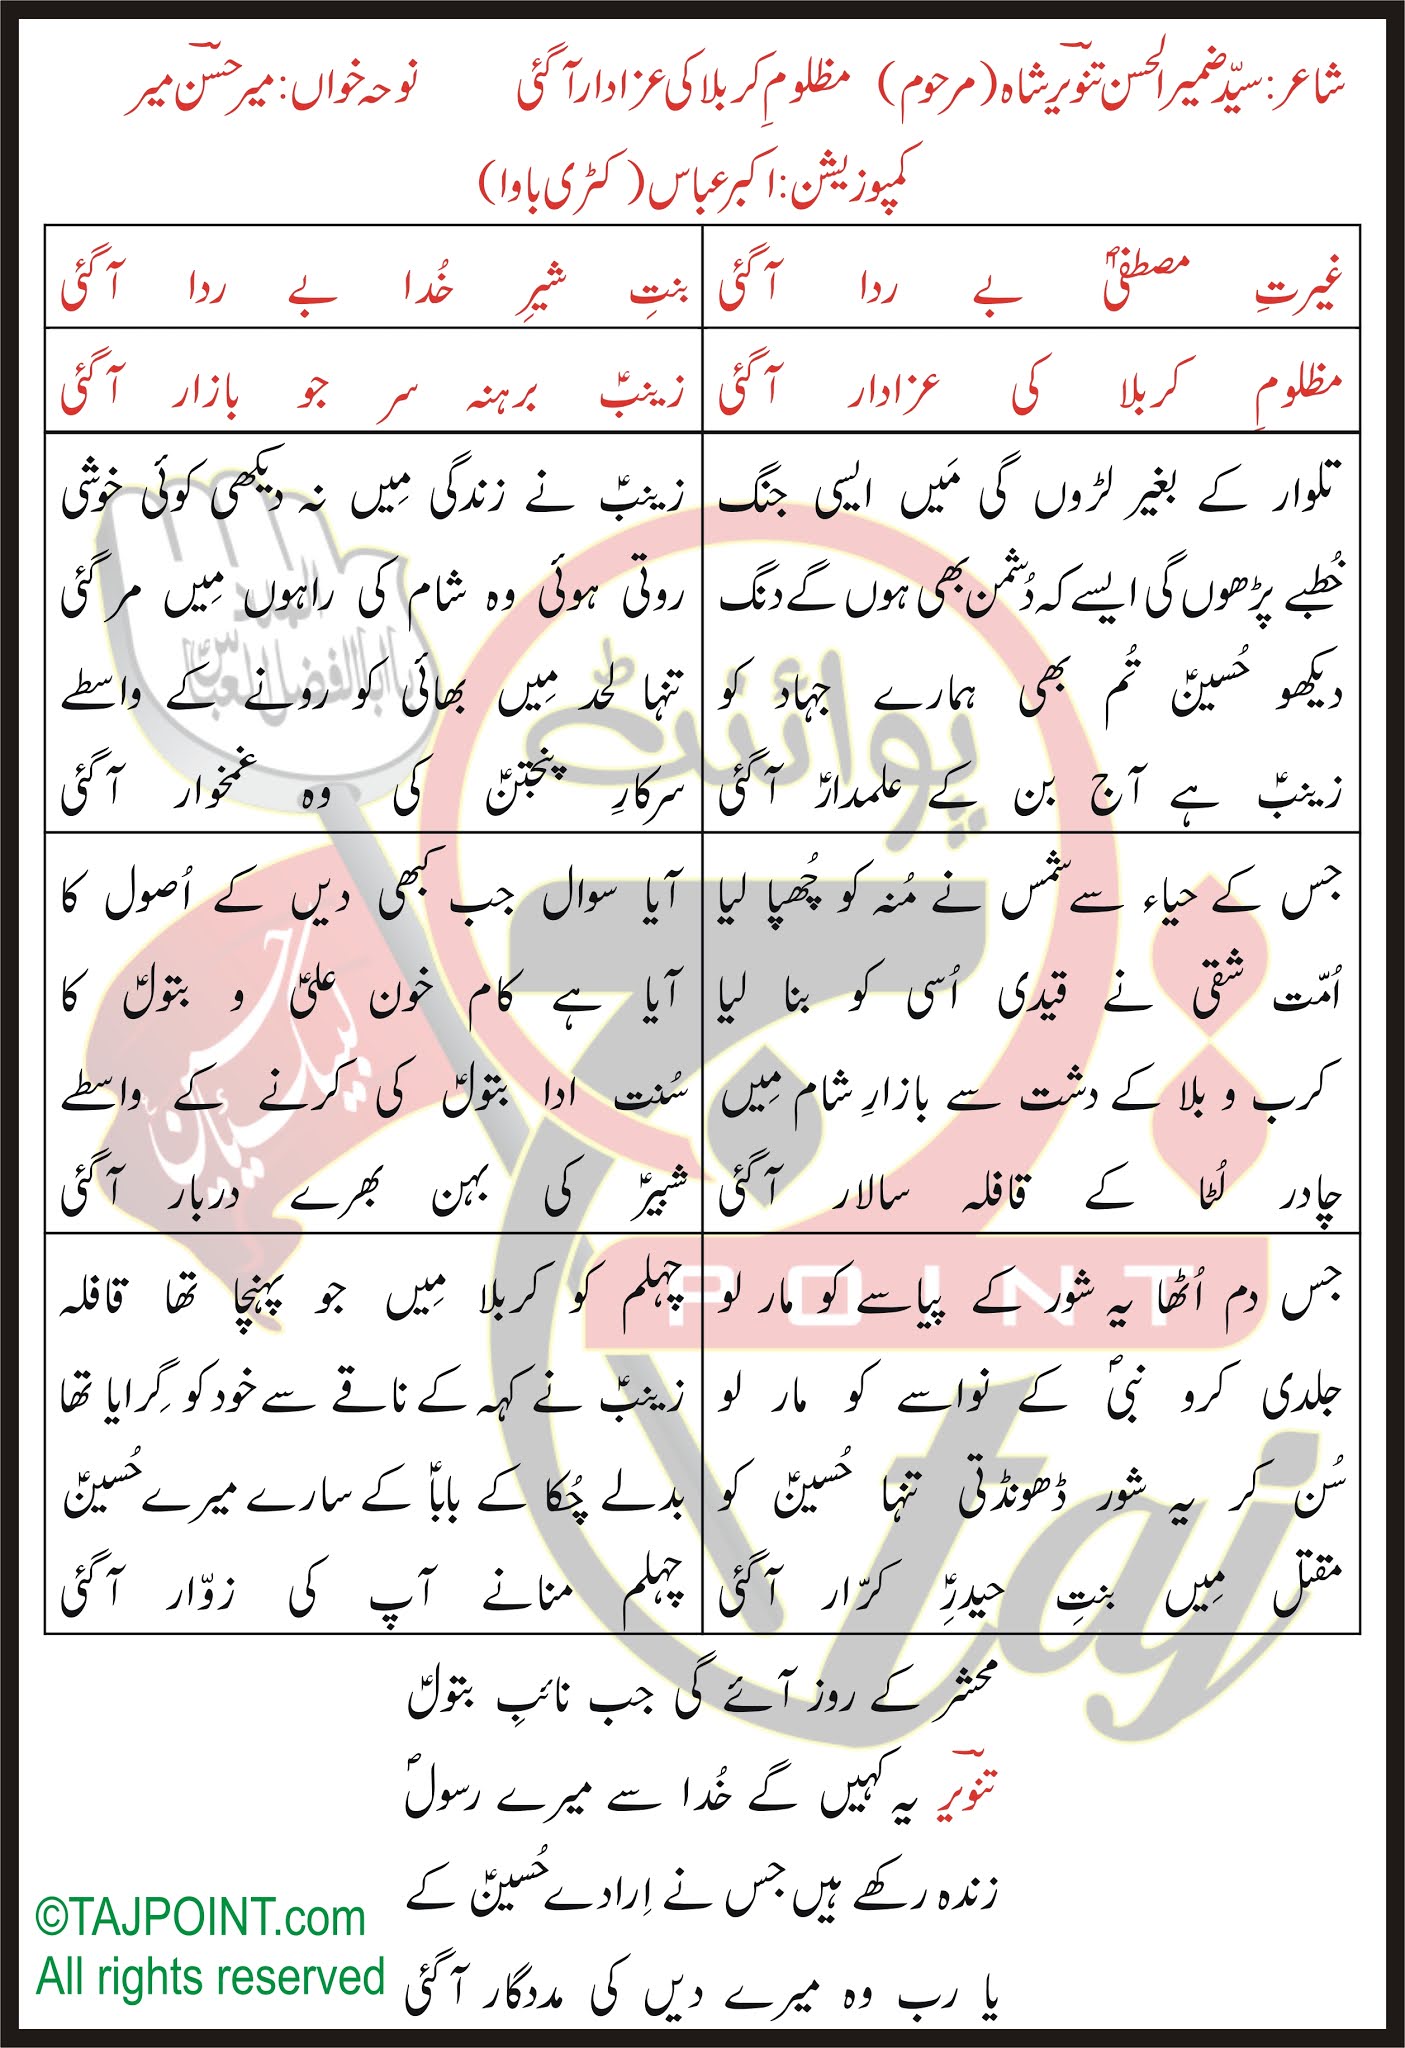 شاعر: سیّد ضمیر الحسن تنویر شاہ (مرحوم) مظلومِ کربلا کی عزادار آ گئی نوحہ خواں: میر حسن میر
کمپوزیشن: اکبر عباس (کٹری باوا)
غیرتِ مصطفیٰؐ بے ردا آ گئی
بنتِ شیرِ خُدا بے ردا آ گئی
مظلومِ کربلا کی عزادار آ گئی
زینبؑ برہنہ سر جو بازار آ گئی
تلوار کے بغیر لڑوں گی مَیں ایسی جنگ
خُطبے پڑھوں گی ایسے کہ دُشمن بھی ہوں گے دنگ
دیکھو حُسینؑ تُم بھی ہمارے جہاد کو
زینبؑ ہے آج بن کے علمدارؑ آ گئی
زینبؑ نے زندگی مِیں نہ دیکھی کوئی خوشی
روتی ہوئی وہ شام کی راہوں مِیں مر گئی
تنہا لحد مِیں بھائی کو رونے کے واسطے
سرکارِ پنجتنؑ کی وہ غمخوار آ گئی
جس کے حیاء سے شمس نے مُنہ کو چُھپا لیا
اُمّت شقی نے قیدی اُسی کو بنا لیا
کرب و بلا کے دشت سے بازارِ شام مِیں
چادر لُٹا کے قافلہ سالار آ گئی
آیا سوال جب کبھی دیں کے اُصول کا
آیا ہے کام خون علیؑ و بتولؑ کا
سُنت ادا بتولؑ کی کرنے کے واسطے
شبیرؑ کی بہن بھرے دربار آ گئی
جس دم اُٹھا یہ شور کے پیاسے کو مار لو
جلدی کرو نبیؐ کے نواسے کو مار لو
سُن کر یہ شور ڈھونڈتی تنہا حُسینؑ کو
مقتل مِیں بنتِ حیدرِؑ کرّار آ گئی
چہلم کو کربلا مِیں جو پہنچا تھا قافلہ
زینبؑ نے کہہ کے ناقے سے خود کو گِرایا تھا
بدلے چُکا کے باباؑ کے سارے میرے حُسینؑ
چہلم منانے آپ کی زوّار آ گئی
محشر کے روز آئے گی جب نائبِ بتولؑ
تنویر یہ کہیں گے خُدا سے میرے رسولؐ
زندہ رکھے ہیں جس نے اِرادے حُسینؑ کے
یا رب وہ میرے دیں کی مددگار آ گئی
©TAJPOINT.com
All rights reserved
پوائنٹ
POINT
taj
لبیک یا حسینؑ